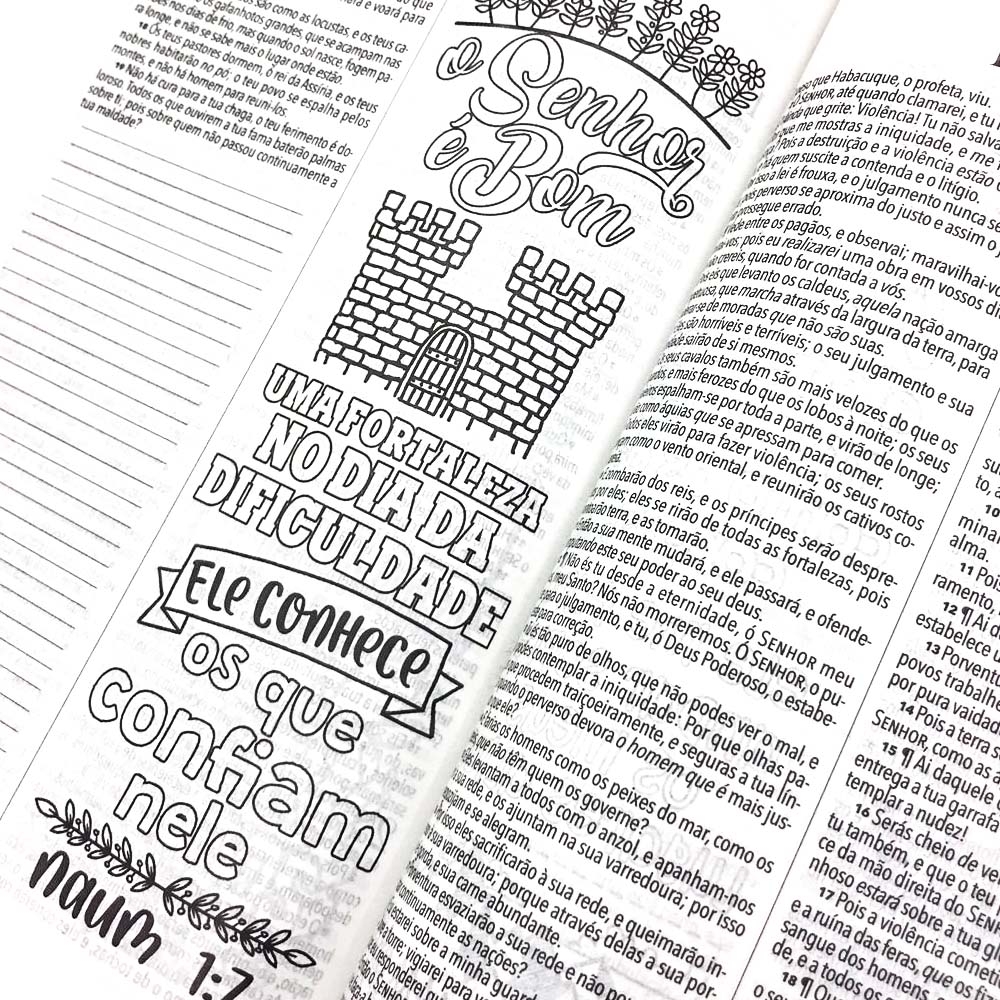 os gafanhotos grandes, que se acampam nas
nos dias de frio, mas quando o sol nasce, fogem pa-
ra longe, e não se sabe mais o lugar onde estão.
18 Os teus pastores dormem, ó rei da Assíria, e os teus
nobres habitarão no pó; o teu povo se espalha pelos
montes, e não há homem para reuni-los.
19 Não há cura para a tua chaga, o teu ferimento é do-
loroso. Todos os que ouvirem a tua fama baterão palmas
sobre ti; pois sobre quem não passou continuamente a
tua maldade?
o Senhor
é Bom
UMA FORTALEZA
NO DIA DA
DIFICULDADE
Ele conhece
os que
confiam
nele
naum 1:7
que Habacuque, o profeta, viu.
SENHOR, até quando clamarei, e tu
que grite: Violência! Tu não salva
me mostras a iniquidade, e me
Pois a destruição e a violência estão
quem suscite a contenda e o litígio.
isso a lei é frouxa, e o julgamento nunca se
perverso se aproxima do justo e assim o
prossegue errado.
entre os pagãos, e observai; maravilhai-vo
pois eu realizarei uma obra em vossos di
crereis, quando for contada a vós.
eis que levanto os caldeus, aquela nação amarga
que marcha através da largura da terra, para
de moradas que não são suas.
são horríveis e terríveis; o seu julgamento e sua
sairão de si mesmos.
seus cavalos também são mais velozes do que os
e mais ferozes do que os lobos à noite; os seus
espalham-se por toda a parte, e virão de longe;
como águias que se apressam para comer.
eles virão para fazer violência; os seus rostos
como o vento oriental, e reunirão os cativos co-
zombarão dos reis, e os príncipes serão despre-
por eles; eles se rirão de todas as fortalezas, pois
terra, e as tomarão.
a sua mente mudará, e ele passará, e ofende-
este seu poder ao seu deus.
Não és tu desde a eternidade, ó SENHOR meu
meu Santo? Nós não morreremos. Ó SENHOR, o pu-
para o julgamento, e tu, ó Deus Poderoso, o estabe-
para correção.
tão puro de olhos, que não podes ver o mal, e
contemplar a iniquidade: Por que olhas pa-
que procedem traiçoeiramente, e seguras a tua lín-
quando o perverso devora o homem que é mais jus-
que ele?
farias os homens como os peixes do mar, como os
que não têm quem os governe?
levantam a todos com o anzol, e apanham-nos
sua rede, e os ajuntam na sua varredoura; por isso
e se alegram.
isso eles sacrificarão à sua rede, e queimarão in-
sua varredoura; porque através delas a sua por-
e sua carne abundante.
esvaziarão a sua rede e não pou
continuamente as nações?
estarei sobre a minha guard
torre; vigiarei para ve
responderei qu
o SENHOR
10
minan
alma.
11 Pois
ramento,
12 ¶ Ai d
estabelece u
13 Porvent
povos trabalh
por pura vaidad
14 Pois a terra s
SENHOR, como as a
15 ¶ Ai daquele
entrega a tua garrafa
templar a nudez!
16 Serás cheio de ver
tu também, e que o teu
ce da mão direita do SEN
nhoso estará sobre a tua gl
17 Pois a violência cometi
e a ruína das feras, que os fi
sangue dos homens
de, e a todos os
18 ¶ Qu
o seu